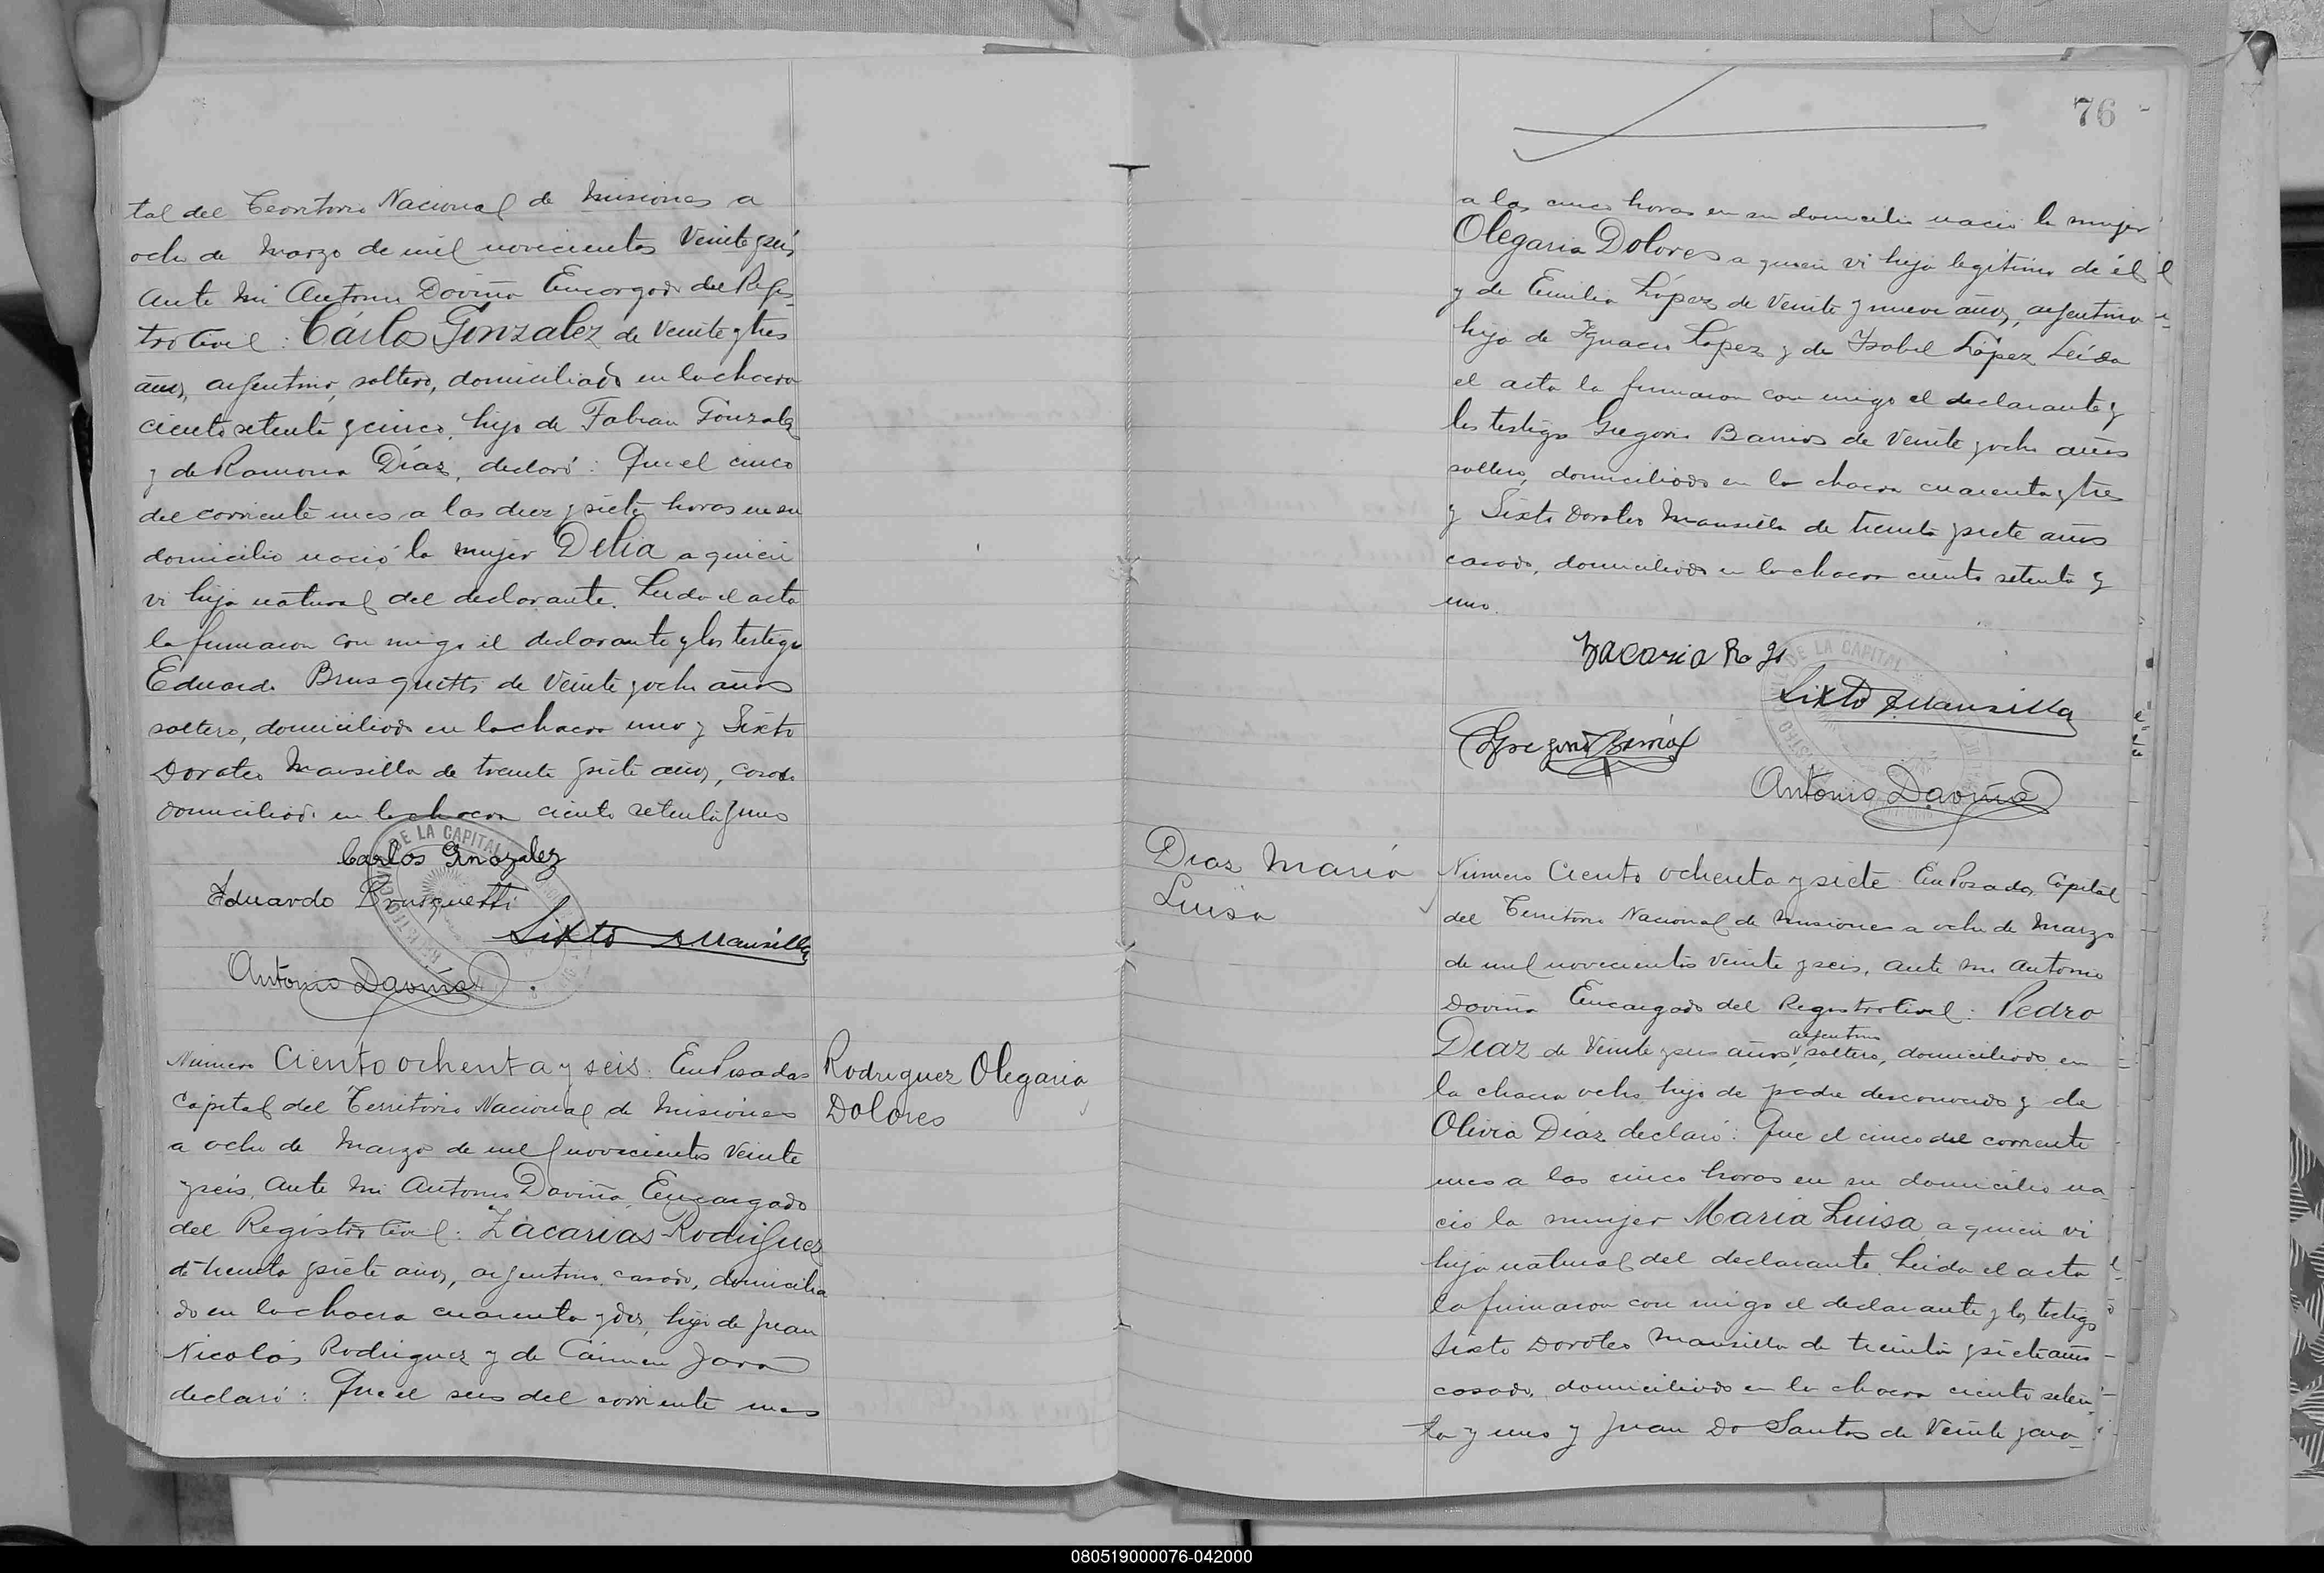 tal del Territorio Nacional de Misiones a
ocho de Marzo de mil novecientos veinte y seis,
ante mi Antonio Daviña Encargado del Regis-
tro Civil: Cárlos Gonzalez de veinte y tres
años, argentino, soltero, domiciliado en la chacra
ciento setenta y cinco, hijo de Fabian Gonzalez
y de Ramona Díaz, declaró: Que el cinco
del corriente mes a las diez y siete horas en su
domicilio nació la mujer Delia a quien
vi hija natural del declarante. Leida el acta
la firmaron con migo el declarante y los testigos
Eduardo Brusquetti de veinte y ocho años
soltero, domiciliado en la chacra uno y Sixto
Doroteo Mansilla de treinta y siete años, casado
domiciliado en la chacra ciento setenta y uno
DE LA CAPITAL
Carlos Gonzalez
Eduardo Brusquetti
Sixto D Mansilla
Antonio Daviña
Número Ciento ochenta y seis. En Posadas
Capital del Territorio Nacional de Misiones
a ocho de Marzo de mil novecientos veinte
y seis, ante mi Antonio Daviña, Encargado
del Registro Civil: Zacarias Rodriguez
de treinta y siete años, argentino, casado, domicilia
do en la chacra cuarenta y dos, hijo de Juan
Nicolás Rodriguez y de Cármen Jara
declaró: Que el seis del corriente mes
Rodriguez Olegaria
Dolores
76
a las cinco horas en su domicilio nacio la mujer
Olegaria Dolores a quien vi hija legitima de él
y de Emilia López de veinte y nueve años, argentina
hija de Ignacio López y de Isabel López Leída
el acta la firmaron con migo el declarante y
los testigos Gregorio Barrios de veinte y ocho años
soltero, domiciliado en la chacra cuarenta y tres
y Sixto Doroteo Mansilla de treinta y siete años
casado, domiciliado en la chacra ciento setenta y
uno.
DE LA CAPITAL
Zacaria
Sixto D Mansilla
Gregorio Barrios
Antonio Daviña
Diaz Maria
Luisa
Número Ciento ochenta y siete. En Posadas, Capital
del Territorio Nacional de Misiones a ocho de Marzo
de mil novecientos veinte y seis, ante mi Antonio
Daviña Encargado del Registro Civil: Pedro
argentino
Diaz de veinte y seis años, soltero, domiciliado en
la chacra ocho, hijo de padre desconocido y de
Olivia Díaz declaró: Que el cinco del corriente
mes a las cinco horas en su domicilio na
cio la mujer Maria Luisa, a quien vi
hija natural del declarante. Leida el acta
la firmaron con migo el declarante y los testigos
Sixto Doroteo Mansilla de treinta y siete años
casado, domiciliado en la chacra ciento seten-
ta y uno y Juan Do Santos de veinte y cua-
080519000076-042000